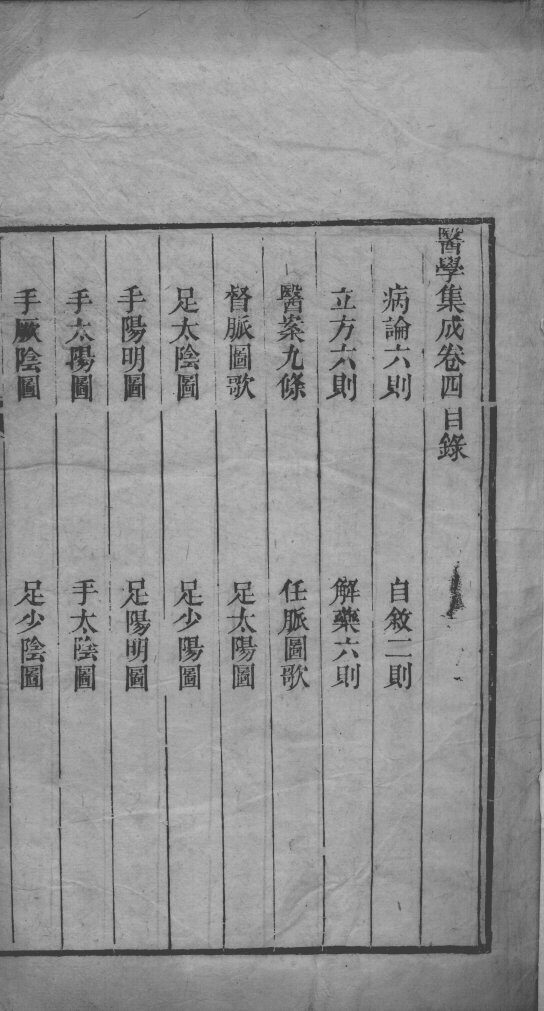 醫學集成卷四目錄
病論六則 自敘二則
立方六則 解藥六則
醫案九條 任脈圖歌
督脈圖歌 足太陽圖
足太陰圖 足少陽圖
手陽明圖 足陽明圖
手太陽圖 手太陰圖
手厥陰圖 足少陰圖